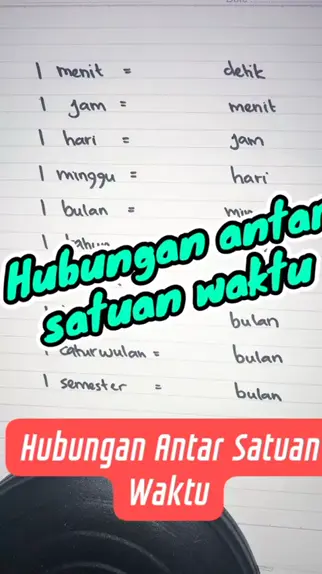 1 menit = detik
1 jam = menit
1 hari = jam
1 minggu = hari
1 bulan =
Hubungan antar
satuan waktu
bulan
1 caturwulan = bulan
1 semester = bulan
Hubungan Antar Satuan
Waktu